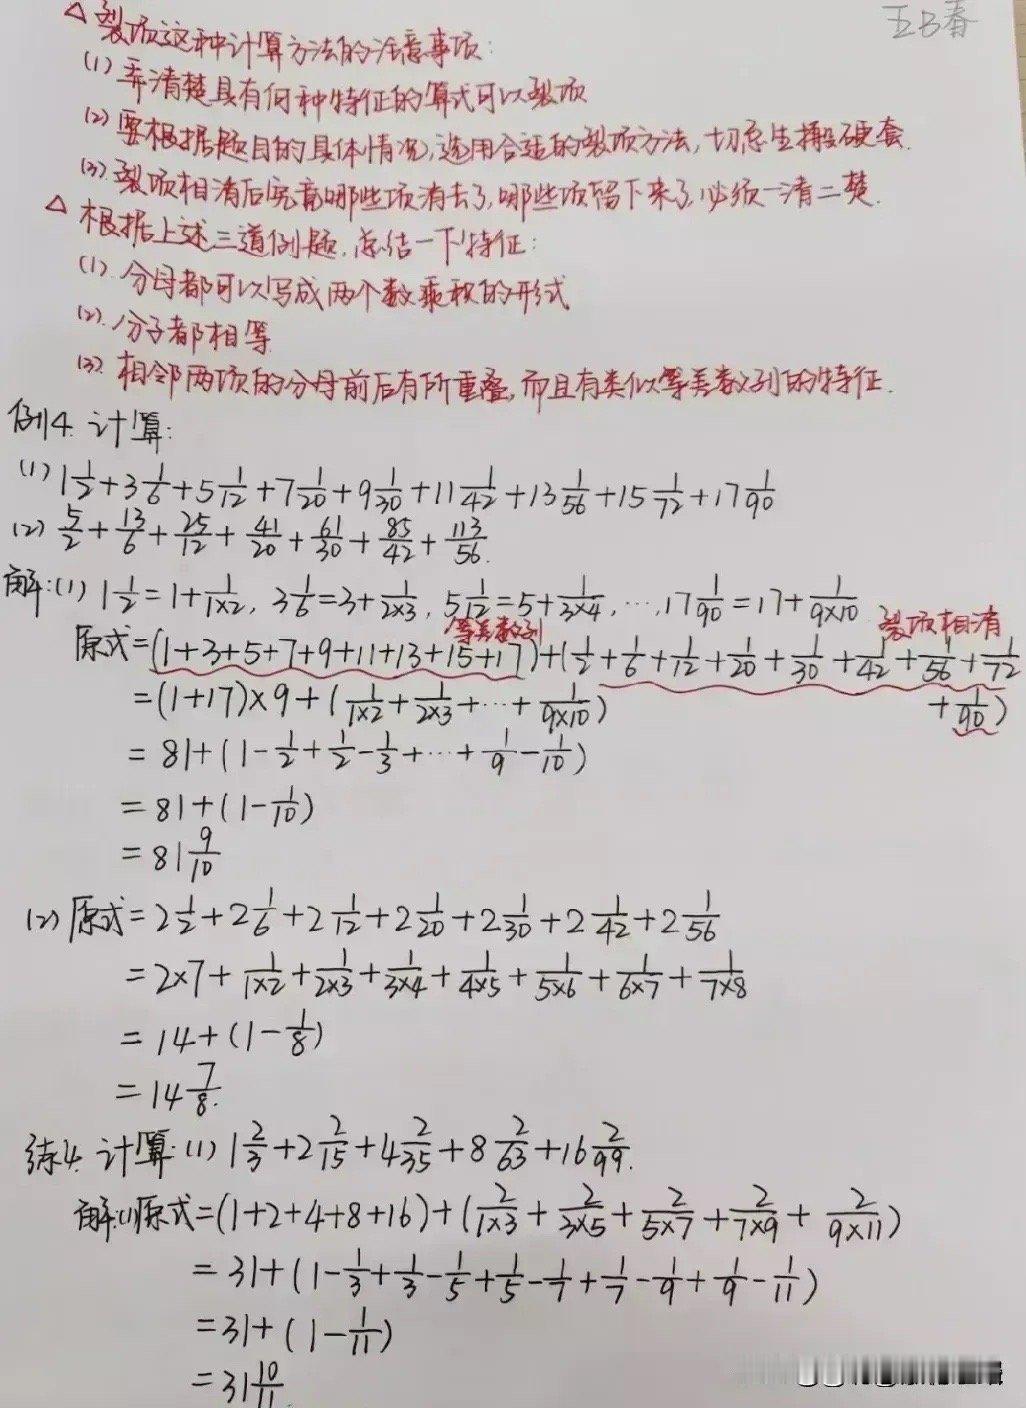 五B春
△ 裂项这种计算方法的注意事项:
(1) 弄清楚具有何种特征的算式可以裂项
(2) 要根据题目的具体情况,选用合适的裂项方法,切忌生搬硬套.
(3). 裂项相消后究竟哪些项消去了,哪些项留下来了,必须一清二楚.
△ 根据上述三道例题,总结一下特征:
(1). 分母都可以写成两个数乘积的形式
(2). 分子都相等
(3). 相邻两项的分母前后有所重叠,而且有类似等差数列的特征.
例4. 计算:
(1) 1 1/2+3 1/6+5 1/12+7 1/20+9 1/30+11 1/42+13 1/56+15 1/72+17 1/90
(2) 5/2+13/6+25/12+41/20+61/30+85/42+113/56.
解:(1) 1 1/2=1+1/(1×2), 3 1/6=3+1/(2×3), 5 1/12=5+1/(3×4), …, 17 1/90=17+1/(9×10)
等差数列 裂项相消
原式=(1+3+5+7+9+11+13+15+17)+(1/2+1/6+1/12+1/20+1/30+1/42+1/56+1/72
+1/90)
=(1+17)×9+(1/(1×2)+1/(2×3)+…+1/(9×10))
=81+(1-1/2+1/2-1/3+…+1/9-1/10)
=81+(1-1/10)
=81 9/10
(2) 原式=2 1/2+2 1/6+2 1/12+2 1/20+2 1/30+2 1/42+2 1/56
=2×7+1/(1×2)+1/(2×3)+1/(3×4)+1/(4×5)+1/(5×6)+1/(6×7)+1/(7×8)
=14+(1-1/8)
=14 7/8.
练4. 计算:(1) 1 2/3+2 2/15+4 2/35+8 2/63+16 2/99.
解:(1)原式=(1+2+4+8+16)+(2/(1×3)+2/(3×5)+2/(5×7)+2/(7×9)+2/(9×11))
=31+(1-1/3+1/3-1/5+1/5-1/7+1/7-1/9+1/9-1/11)
=31+(1-1/11)
=31 10/11.